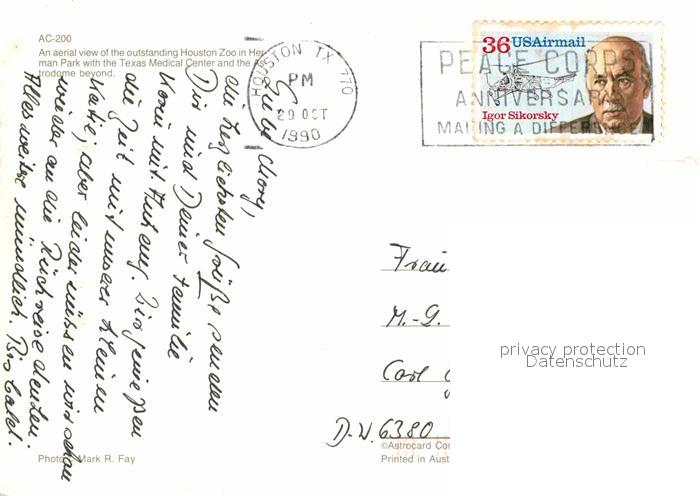 AC-200
An aerial view of the outstanding Houston Zoo in Her-
man Park with the Texas Medical Center and the As-
trodome beyond.
HOUSTON TX 770
PM
29 OCT
1990
36 USAirmail
Igor Sikorsky
PEACE CORPS
ANNIVERSARY
MAKING A DIFFERENCE
Liebe
die herzlichsten Grüße senden
Dir und Deiner Familie
Karin mit Anhang. Wir genießen
die Zeit mit unserer kleinen
Katja, aber leider müssen wir schon
wieder an die Rückreise denken.
Alles weitere mündlich. Bis bald.
Frau
M.-G.
Carl
D-W. 6380
privacy protection
Datenschutz
©Astrocard Com
Printed in Aust
Photo: Mark R. Fay